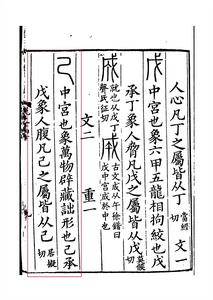 人心凡丁之屬皆从丁 當經切 文一
戊 中宮也象六甲五龍相拘絞也戊
承丁象人脅凡戊之屬皆从戊 莫候切
成 就也从戊丁聲氏征切 古文成从午徐鍇曰戊中宮成於中也
文二 重一
己 中宮也象萬物辟藏詘形也己承
戊象人腹凡己之屬皆从己 居擬切